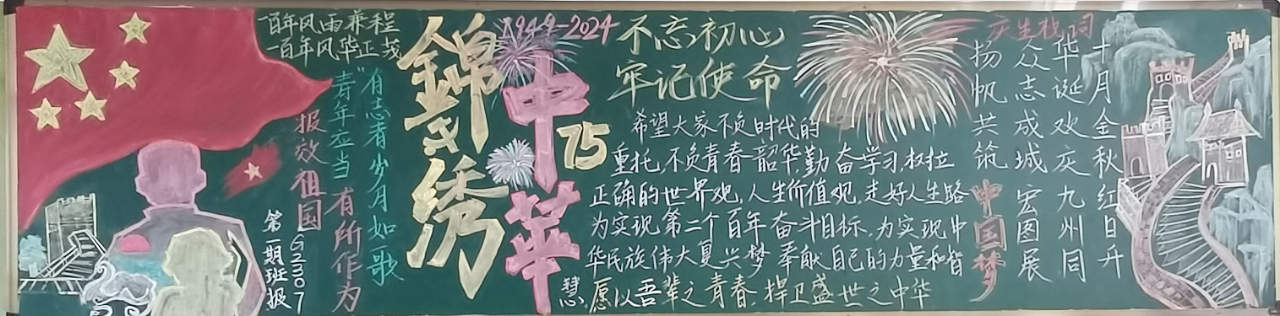 百年风雨兼程
一百年风华正茂
"有志者少月如歌
青年应当
有所作为
报效祖国
G2307
第二期班报
錦绣
中華
1949-2024
75
不忘初心
牢记使命
希望大家不负时代的
重托,不负青春韶华,勤奋学习,树立
正确的世界观,人生价值观,走好人生路
为实现第二个百年奋斗目标,为实现中
华民族伟大复兴梦奉献自己的力量和智
慧.愿以吾辈之青春,捍卫盛世之中华
庆生找词
十月金秋红日升
华诞欢庆九州同
众志成城宏图展
扬帆共筑
中国梦